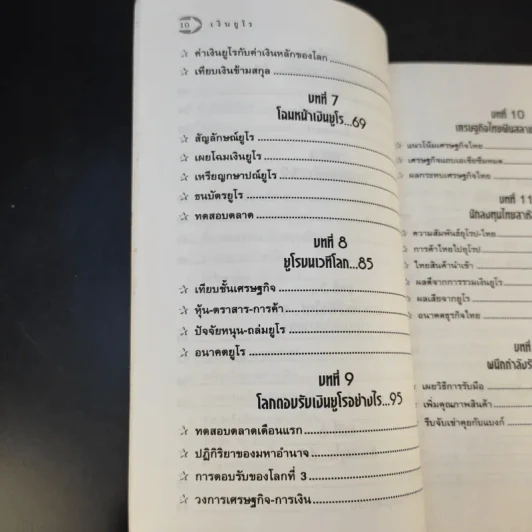 10 เงินยูโร
☆ ค่าเงินยูโรกับค่าเงินหลักของโลก
☆ เทียบเงินข้ามสกุล
บทที่ 7
โฉมหน้าเงินยูโร...69
☆ สัญลักษณ์ยูโร
☆ เผยโฉมเงินยูโร
☆ เหรียญกษาปณ์ยูโร
☆ ธนบัตรยูโร
☆ ทดสอบตลาด
บทที่ 8
ยูโรบนเวทีโลก...85
☆ เทียบชั้นเศรษฐกิจ
☆ หุ้น-ตราสาร-การค้า
☆ ปัจจัยหนุน-ถล่มยูโร
☆ อนาคตยูโร
บทที่ 9
โลกตอบรับเงินยูโรอย่างไร...95
☆ ทดสอบตลาดเดือนแรก
☆ ปฏิกิริยาของมหาอำนาจ
☆ การตอบรับของโลกที่ 3
☆ วงการเศรษฐกิจ-การเงิน
บทที่ 10
เศรษฐกิจไทย
☆ แนวโน้มเศรษฐกิจไทย
☆ เศรษฐกิจแถบเอเชียซึมหมด
☆ ผลกระทบเศรษฐกิจไทย
บทที่ 11
นักลงทุนไทย
☆ ความสัมพันธ์ยุโรป-ไทย
☆ การค้าไทยไปยุโรป
☆ ไทยสินค้านำเข้า
☆ ผลดีจากการรวมเงินยูโร
☆ ผลเสียจากยูโร
☆ อนาคตธุรกิจไทย
บทที่
ผนึกกำลัง
☆ เผยวิธีการรับมือ
☆ เพิ่มคุณภาพสินค้า
☆ รีบจับเข่าคุยกับแบงก์